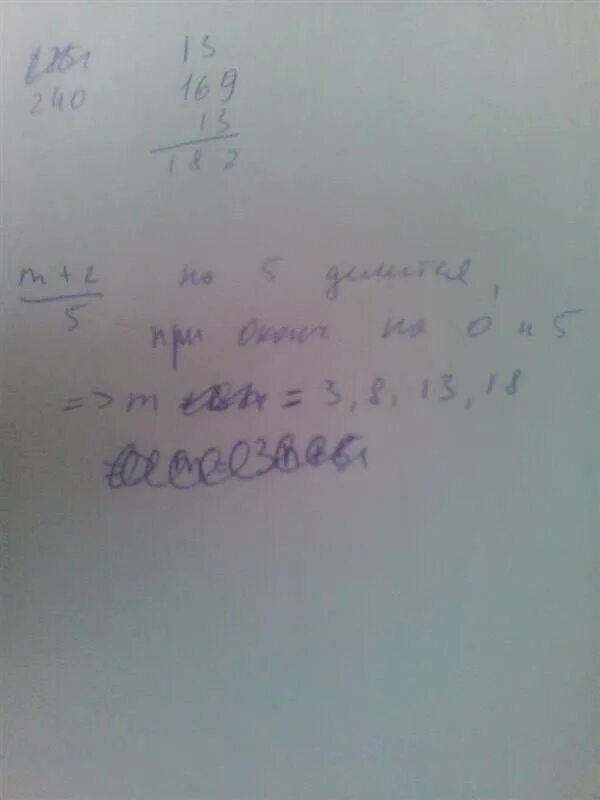 13
240 169
13
182
m + 2
5
на 5 делится,
при оконч на 0 и 5
=> m = 3, 8, 13, 18